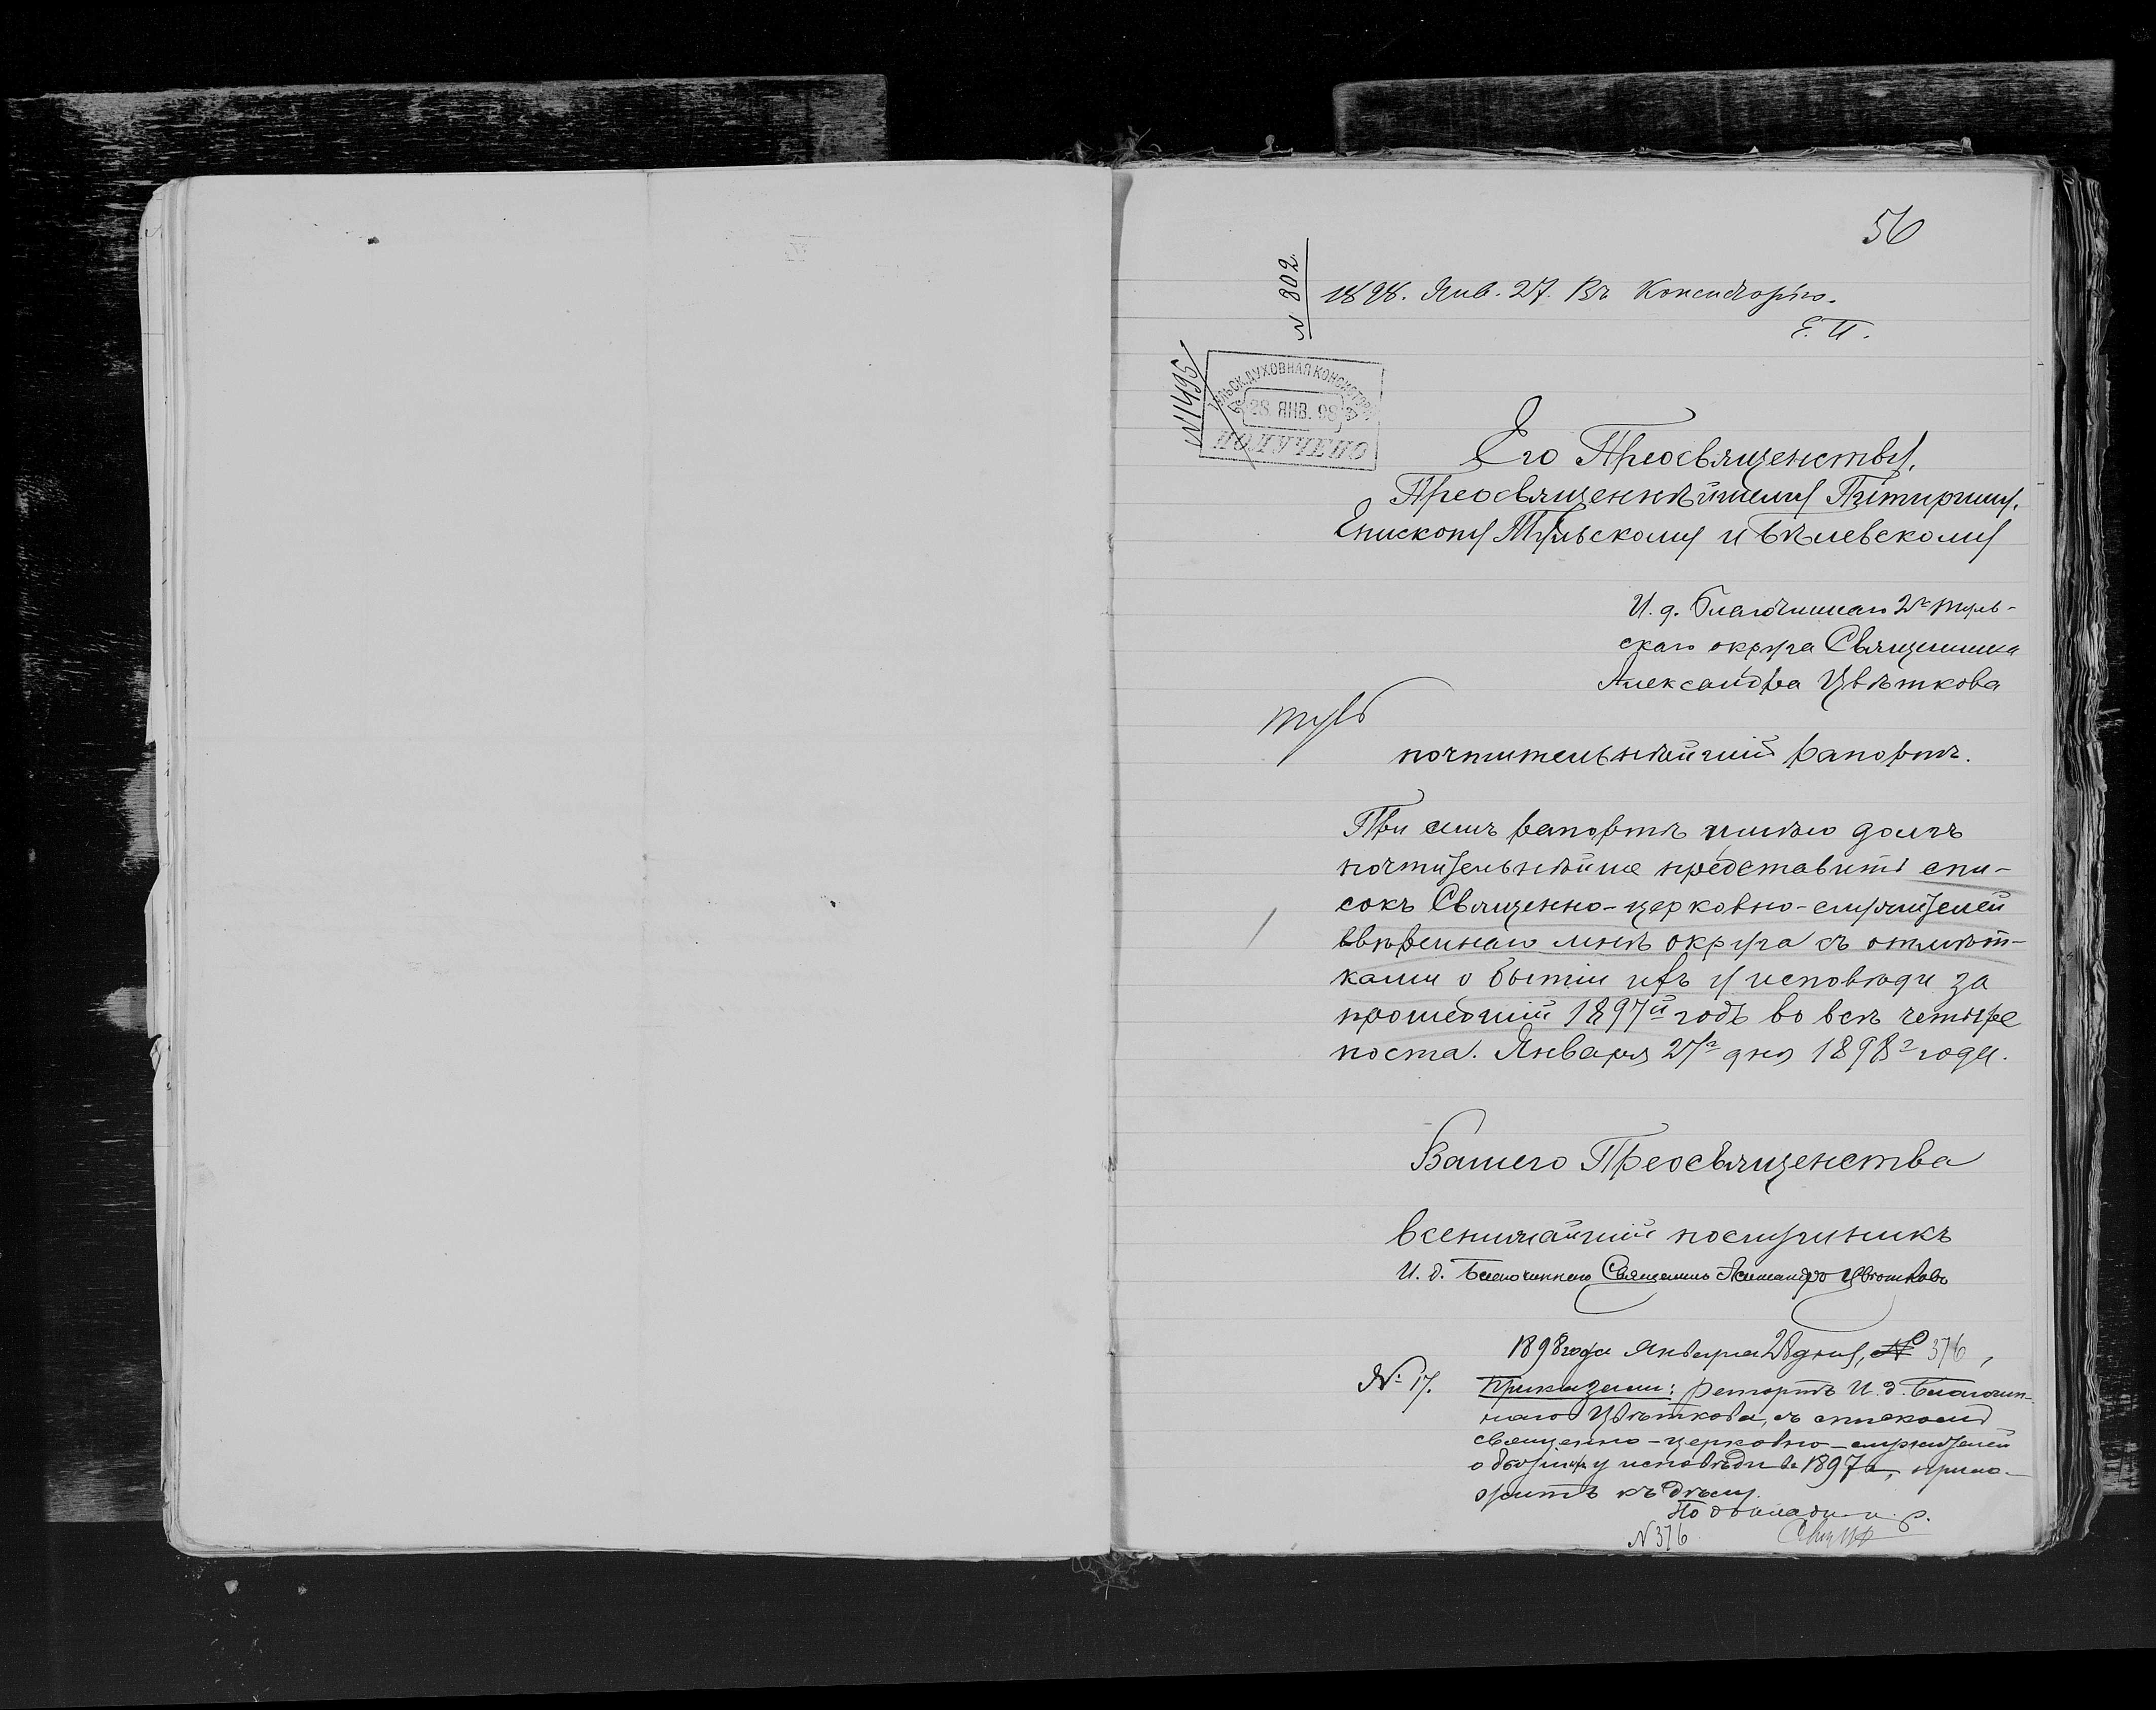 56
N 802.
1898. Янв. 27. Въ Консисторію.
Е. П.
N 1495
ТУЛЬСК. ДУХОВНАЯ КОНСИСТОРІЯ
28 ЯНВ. 98
ПОЛУЧЕНО
Его Преосвященству,
Преосвященнѣйшему Питириму,
Епископу Тульскому и Бѣлевскому
И. д. Благочиннаго 2го Туль-
скаго округа Священника
Александра Цвѣткова
почтительнѣйшій рапортъ.
При семъ рапортѣ имѣю долгъ
почтительнѣйше представить спи-
сокъ Священно-церковно-служителей
ввѣреннаго мнѣ округа съ отмѣт-
ками о бытіи ихъ у исповѣди за
прошедшій 1897й годъ во всѣ четыре
поста. Января 27го дня 1898го года.
Вашего Преосвященства
всенижайшій послушникъ
И. д. Благочиннаго Священникъ Александръ Цвѣтковъ
1898 года Января 28 дня, № 376,
№ 17.
Приказали: Рапортъ И. д. Благочин-
наго Цвѣткова, съ спискомъ
священно-церковно-служителей
о бытіи у исповѣди въ 1897 г., прило-
жить къ дѣлу.
N 376